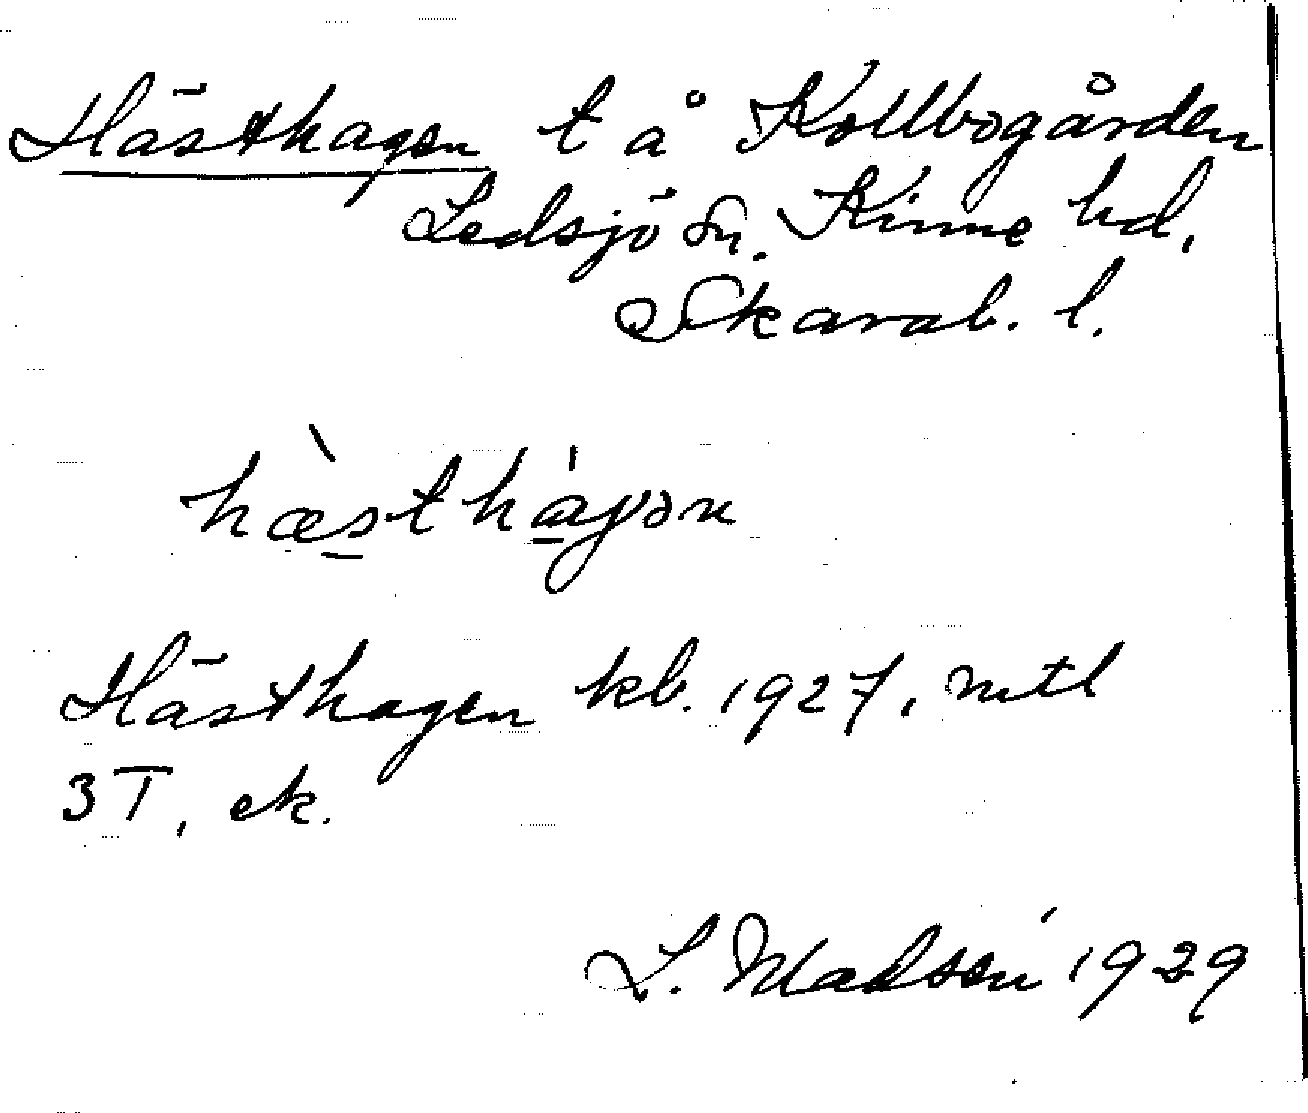 Hästhagen t å Kollbogården
Ledsjö sn. Kinne hd,
Skarab. l.
hæ̀stha̍gən
Hästhagen kb. 1927, mtl
3T, ek.
L. Madsén 1929